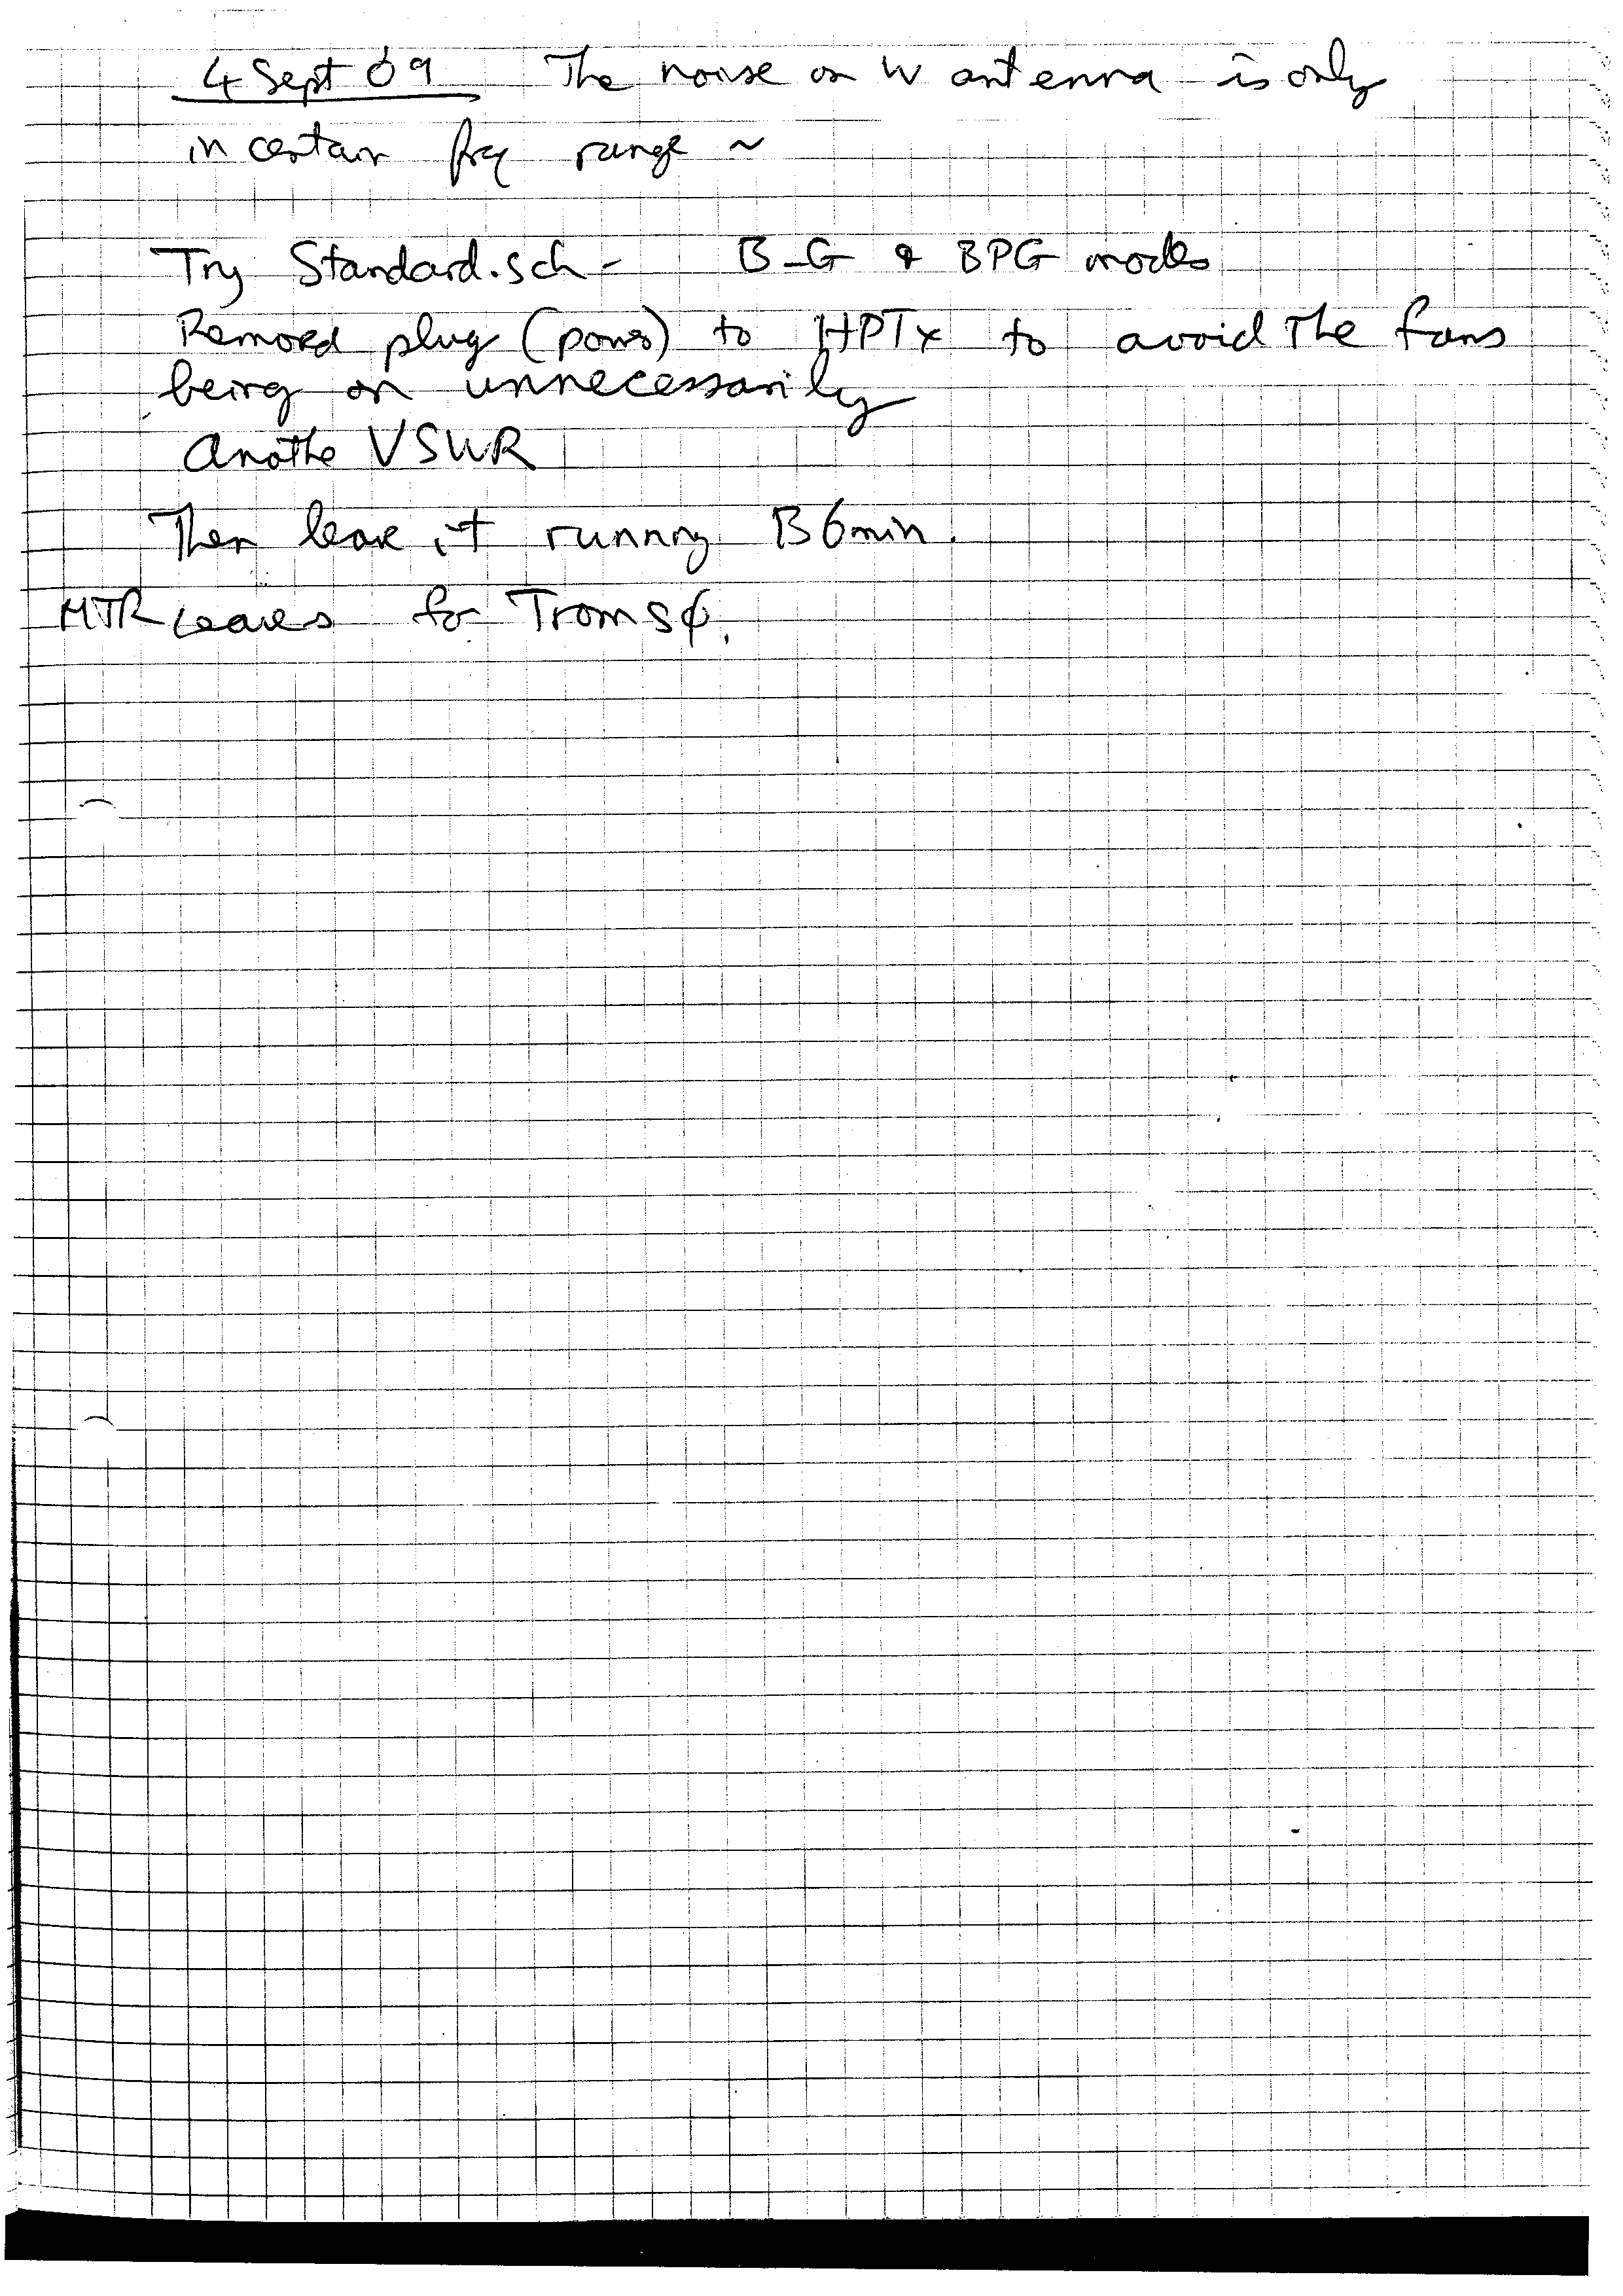 4 Sept 09 The noise on W antenna is only
in certain freq range ~
Try Standard.sch - B-G & BPG modes
Removed plug (power) to HPTx to avoid the fans
being on unnecessarily
Another VSWR
Then leave it running B6min.
MTR leaves for Tromsø.